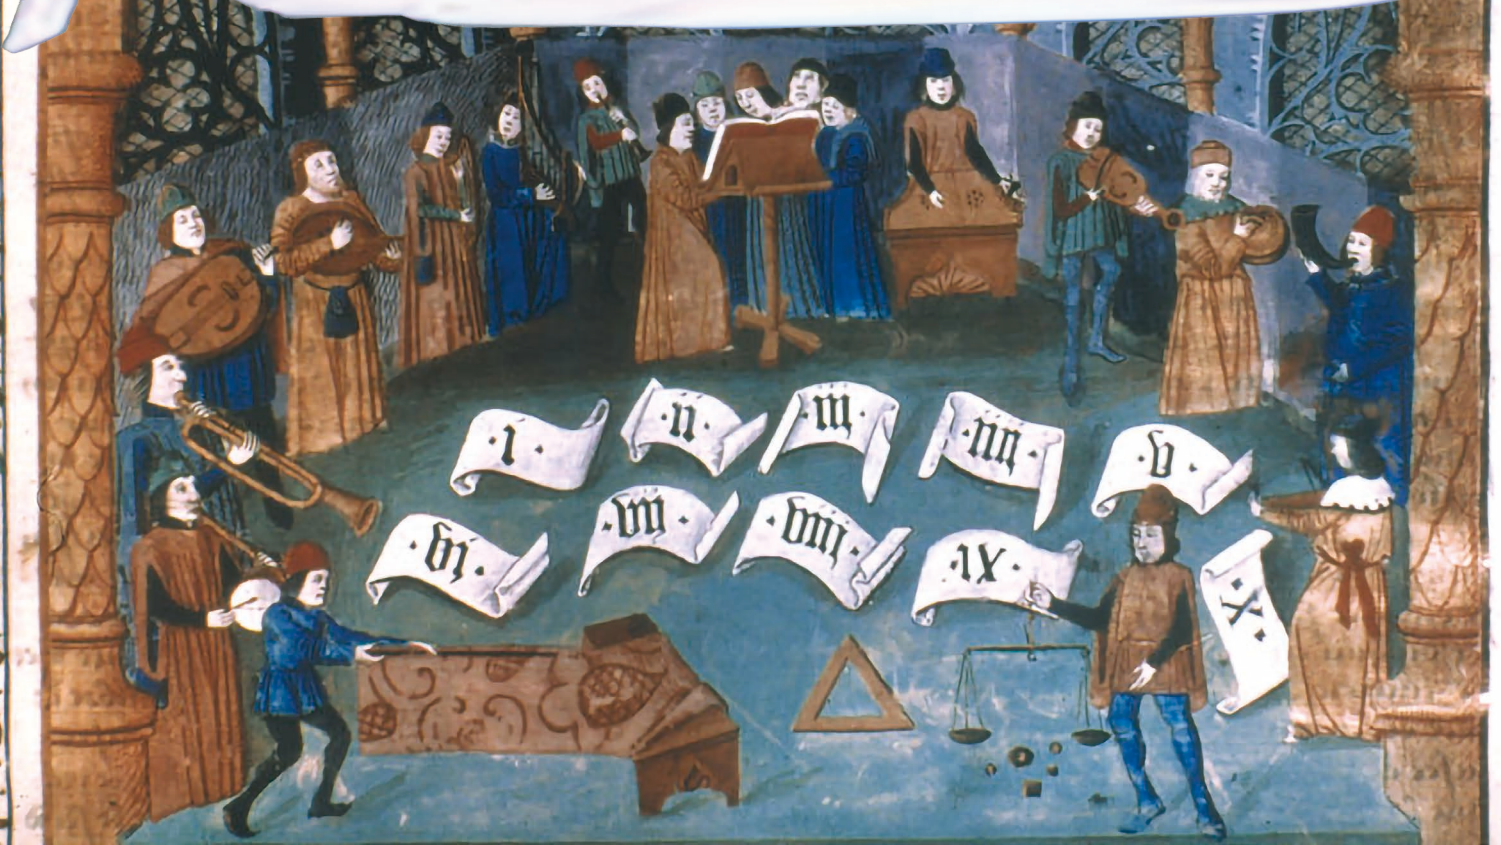 ·i·
·ii·
·iii·
·iiii·
·v·
·vi·
·vii·
·viii·
·ix·
·x·